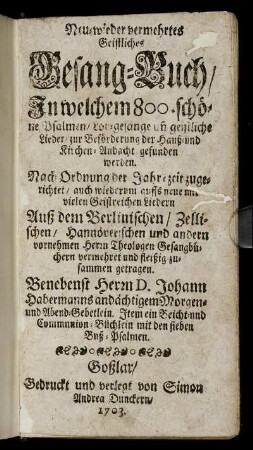 Neu-wieder vermehrtes
Geistliches
Gesang-Buch/
In welchem 800. schö-
ne Psalmen/ Lob-gesänge uñ geistliche
Lieder/ zur Beförderung der Hauß-und
Kirchen-Andacht gefunden
werden.
Nach Ordnung der Jahr-zeit zuge-
richtet/ auch wiederum auffs neue mit
vielen Geistreichen Liedern
Auß dem Berlinischen/ Zelli-
schen/ Hannöverschen und andern
vornehmen Herrn Theologen Gesangbü-
chern vermehret und fleißig zu-
sammen getragen.
Benebenst Herrn D. Johann
Habermanns andächtigem Morgen-
und Abend-Gebetlein. Item ein Beicht-und
Communion-Büchlein mit den sieben
Buß-Psalmen.
Goßlar/
Gedruckt und verlegt von Simon
Andrea Dunckern/
1703.